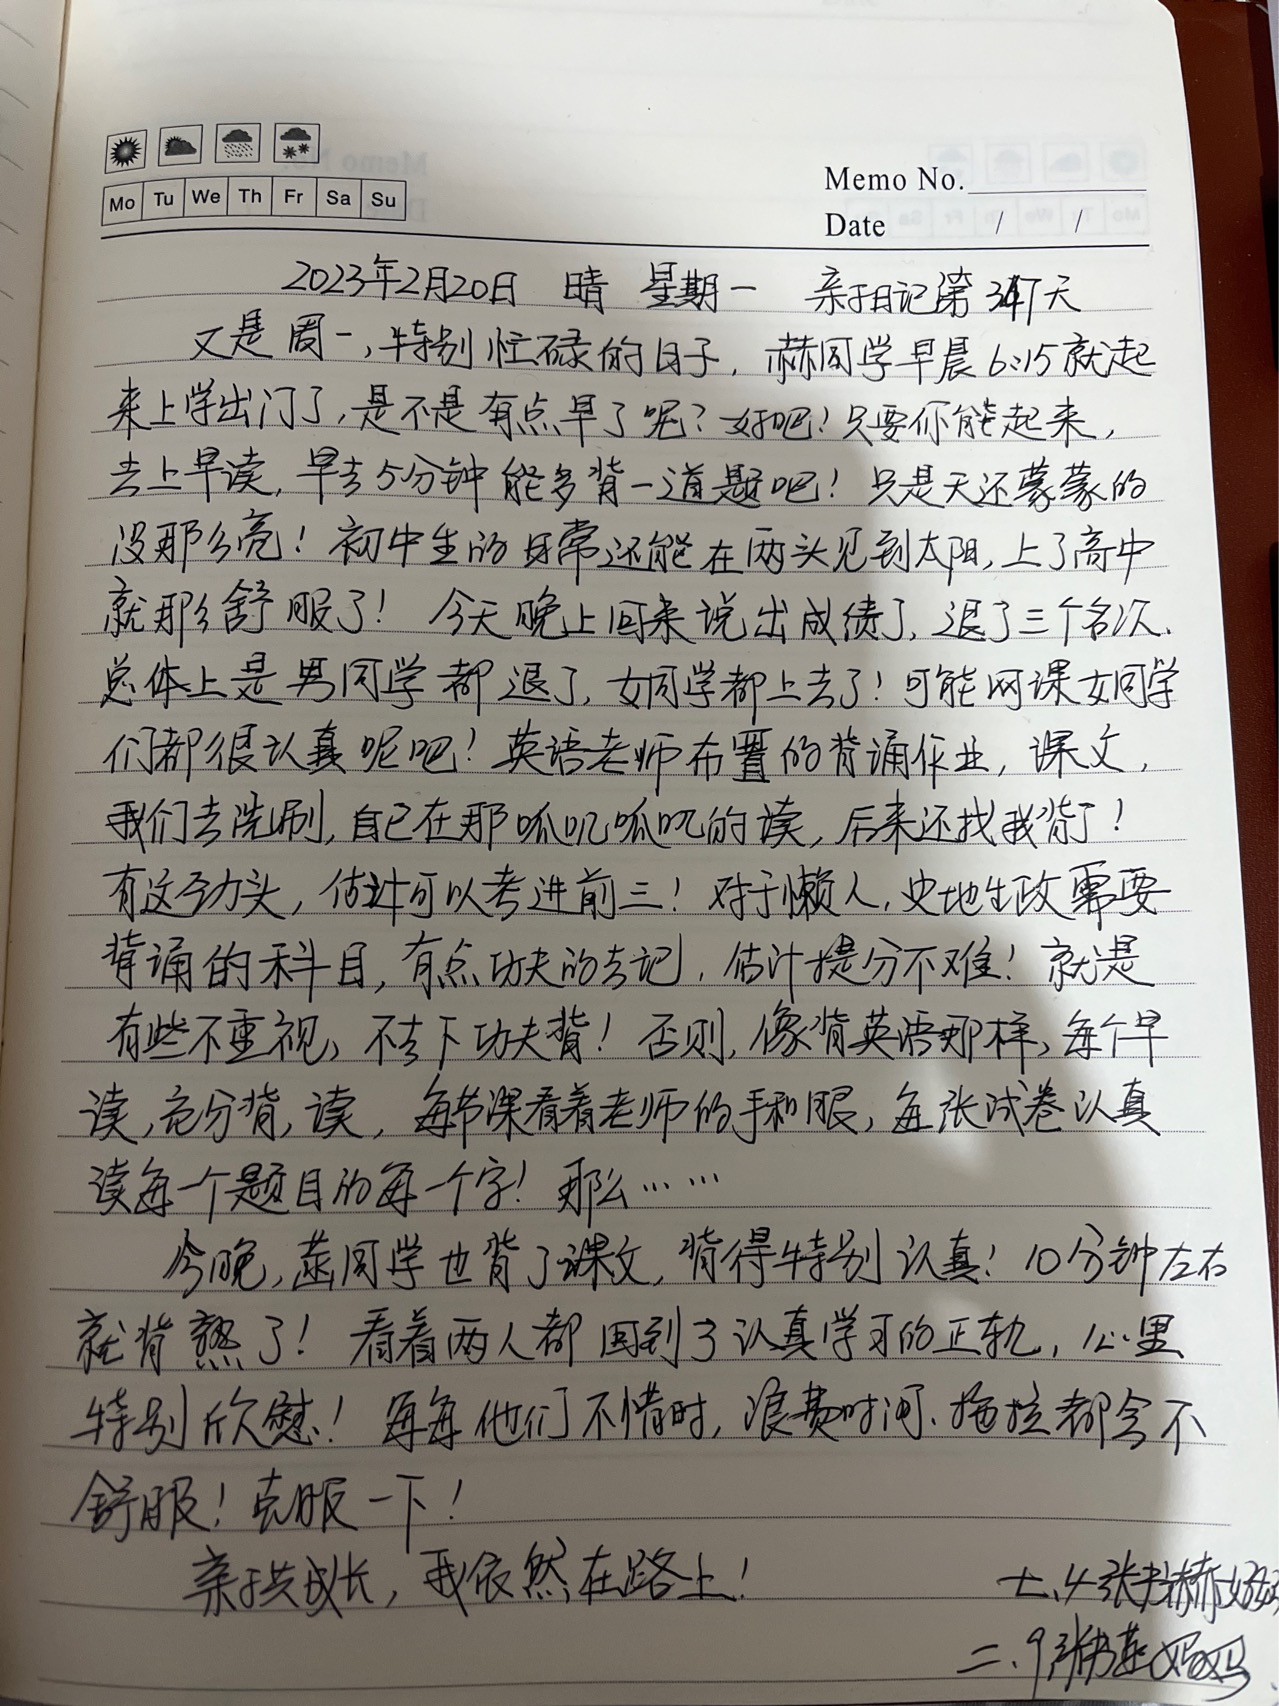 Mo Tu We Th Fr Sa Su
Memo No.
Date / /
2023年2月20日 晴 星期一 亲子日记第347天
又是周一,特别忙碌的日子,赫同学早晨6:15就起
来上学出门了,是不是有点早了呢?好吧!只要你能起来,
去上早读,早去5分钟能多背一道题吧!只是天还蒙蒙的
没那么亮!初中生的日常还能在两头见到太阳,上了高中
就那么舒服了!今天晚上回来说出成绩了,退了三个名次、
总体上是男同学都退了,女同学都上去了!可能网课女同学
们都很认真呢吧!英语老师布置的背诵作业,课文,
我们去洗刷,自己在那呱叽呱叽的读,后来还找我背了!
有这劲头,估计可以考进前三!对于懒人,史地生政需要
背诵的科目,有点功夫的去记,估计提分不难!就是
有些不重视,不去下功夫背!否则,像背英语那样,每个早
读,充分背,读,每节课看着老师的手和眼,每张试卷认真
读每一个题目的每一个字!那么……
今晚,燕同学也背了课文,背得特别认真!10分钟左右
就背熟了!看着两人都回到了认真学习的正轨,心里
特别欣慰!每每他们不惜时,浪费时间、拖拉都会不
舒服!克服一下!
亲子共成长,我依然在路上!
七、4张书赫妈妈
二、9张书燕妈妈